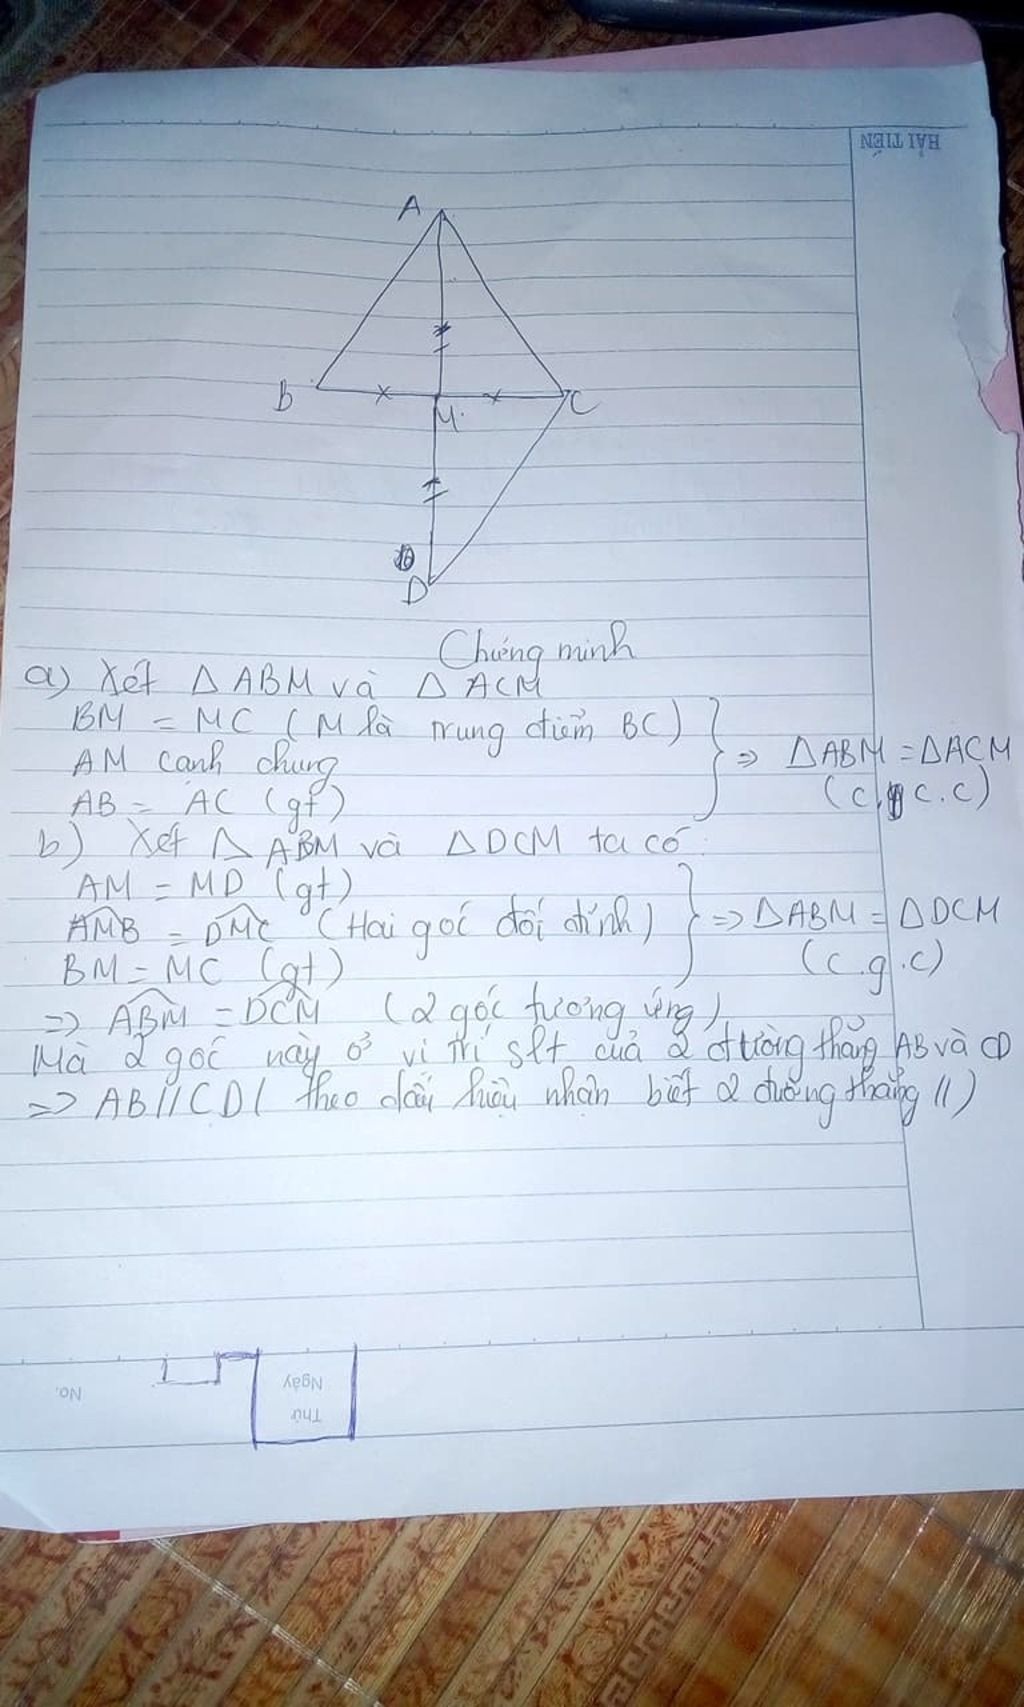 HẢI TIẾN
A
B
M
C
D
Chứng minh
a) Xét Δ ABM và Δ ACM
BM = MC (M là trung điểm BC)
AM cạnh chung
AB = AC (gt)
⇒ ΔABM = ΔACM
(c.c.c)
b) Xét Δ ABM và ΔDCM ta có
AM = MD (gt)
AMB = DMC (Hai góc đối đỉnh)
BM = MC (gt)
⇒ ΔABM = ΔDCM
(c.g.c)
⇒ ABM = DCM (2 góc tương ứng)
Mà 2 góc này ở vị trí slt của 2 đường thẳng AB và CD
⇒ AB//CD( theo dấu hiệu nhận biết 2 đường thẳng //)
No.
Thứ
Ngày